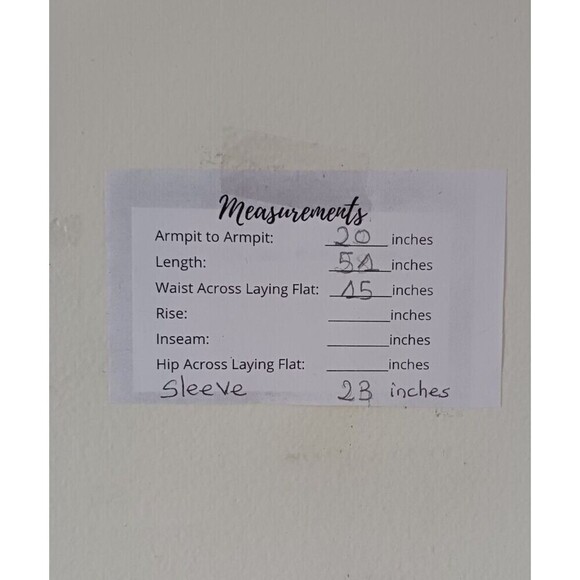 Measurements
Armpit to Armpit: 20 inches
Length: 51 inches
Waist Across Laying Flat: 15 inches
Rise: ______inches
Inseam: ______inches
Hip Across Laying Flat: ______inches
Sleeve 23 inches